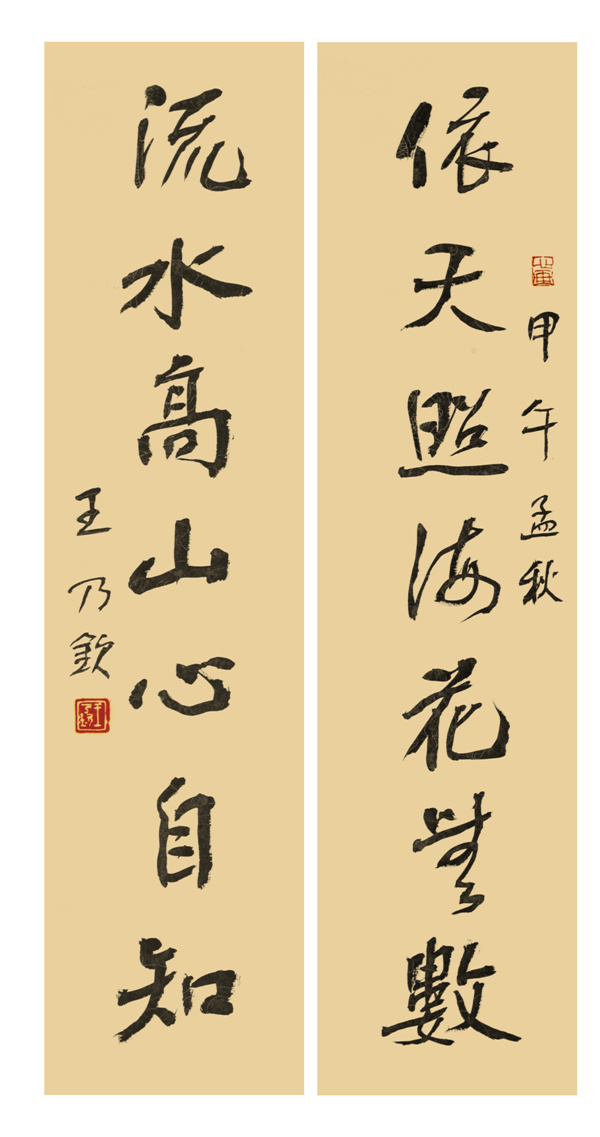 依天照海花無數
甲午孟秋
流水高山心自知
王乃欽